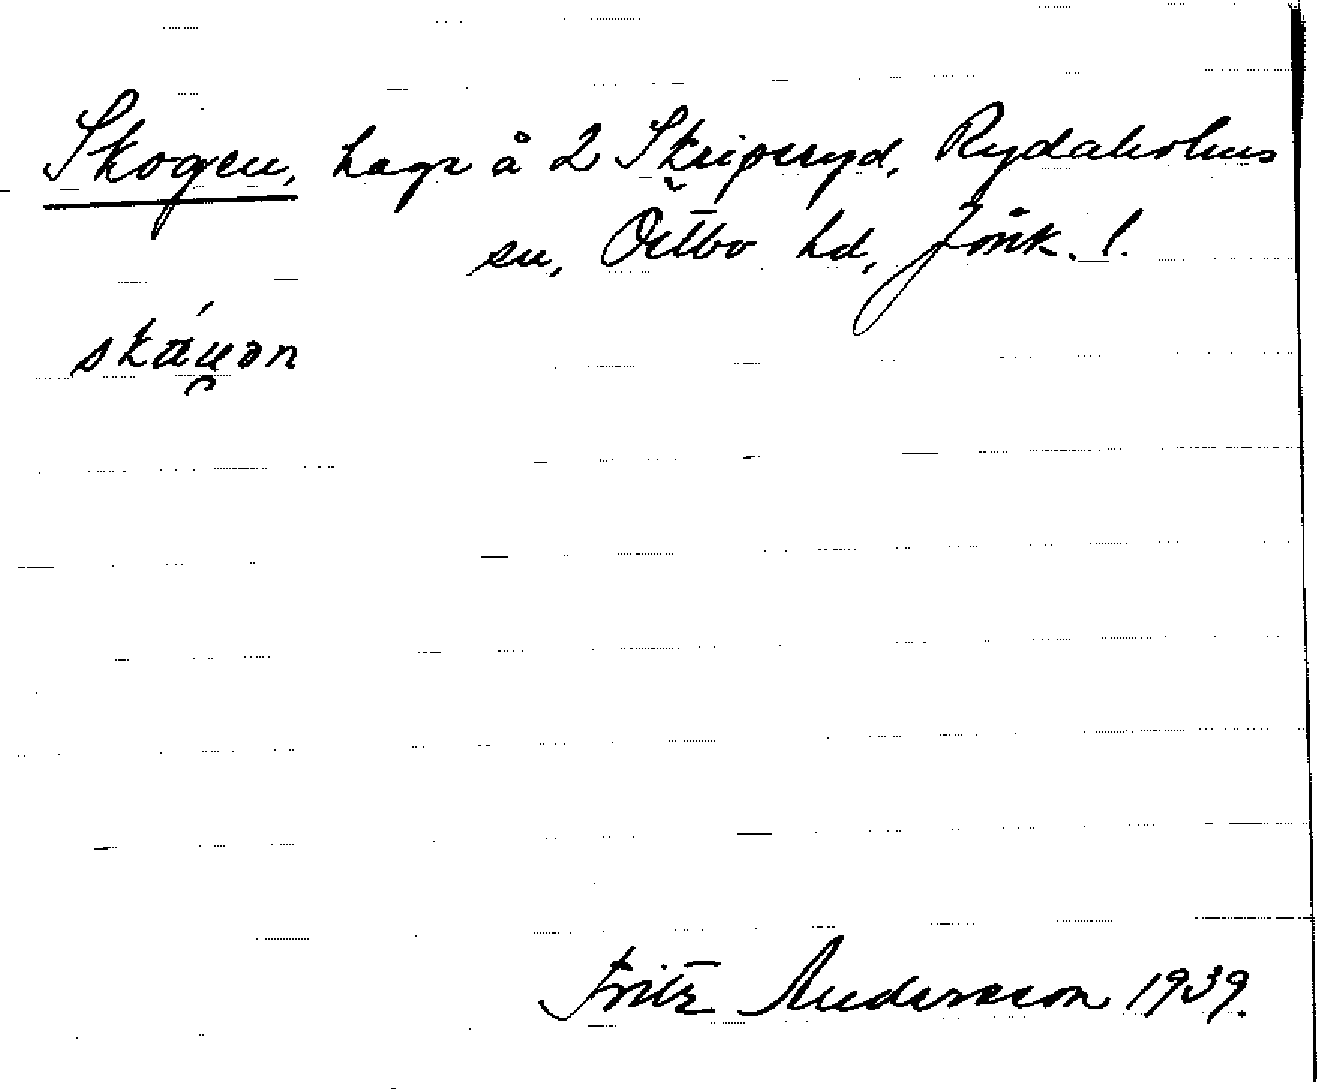 Skogen, hage å 2 Skripseryd, Rydaholms
sn, Östbo hd, Jönk. l.
Fritz Andersson 1939.